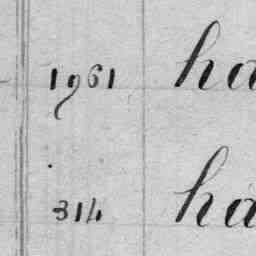 1961 ha
314 ha